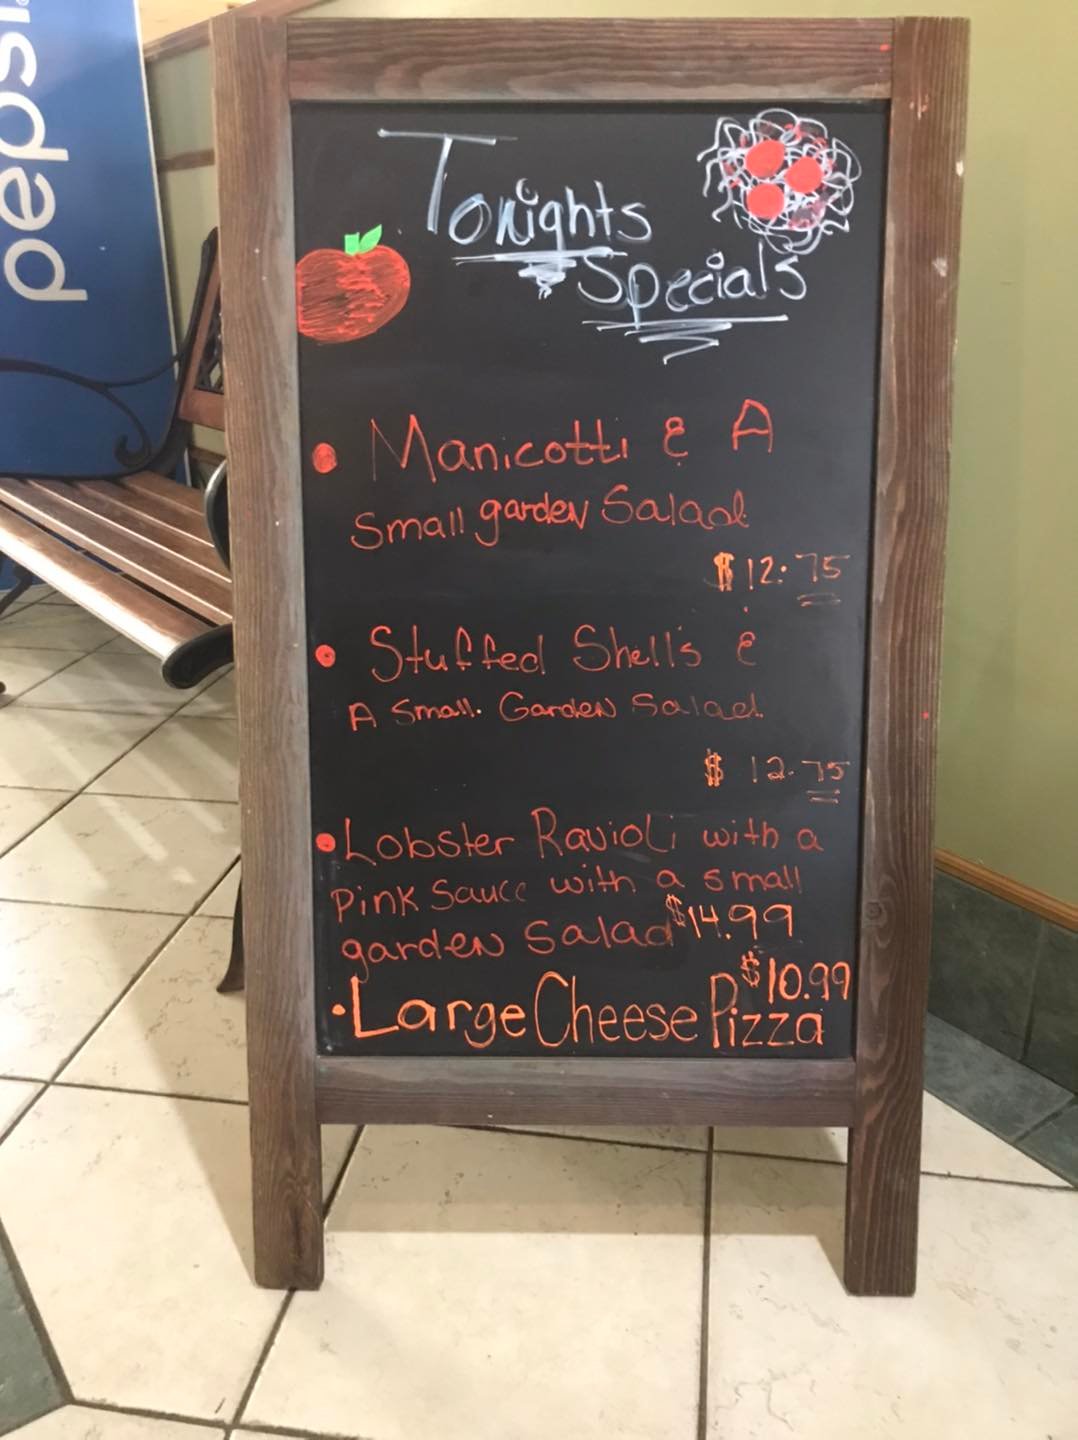 pepsi
Tonights
Specials
• Manicotti & A
Small garden Salad
$12.75
• Stuffed Shells &
A Small. Garden Salad
$ 12.75
• Lobster Ravioli with a
Pink Sauce with a small
garden Salad $14.99
$10.99
• Large Cheese Pizza